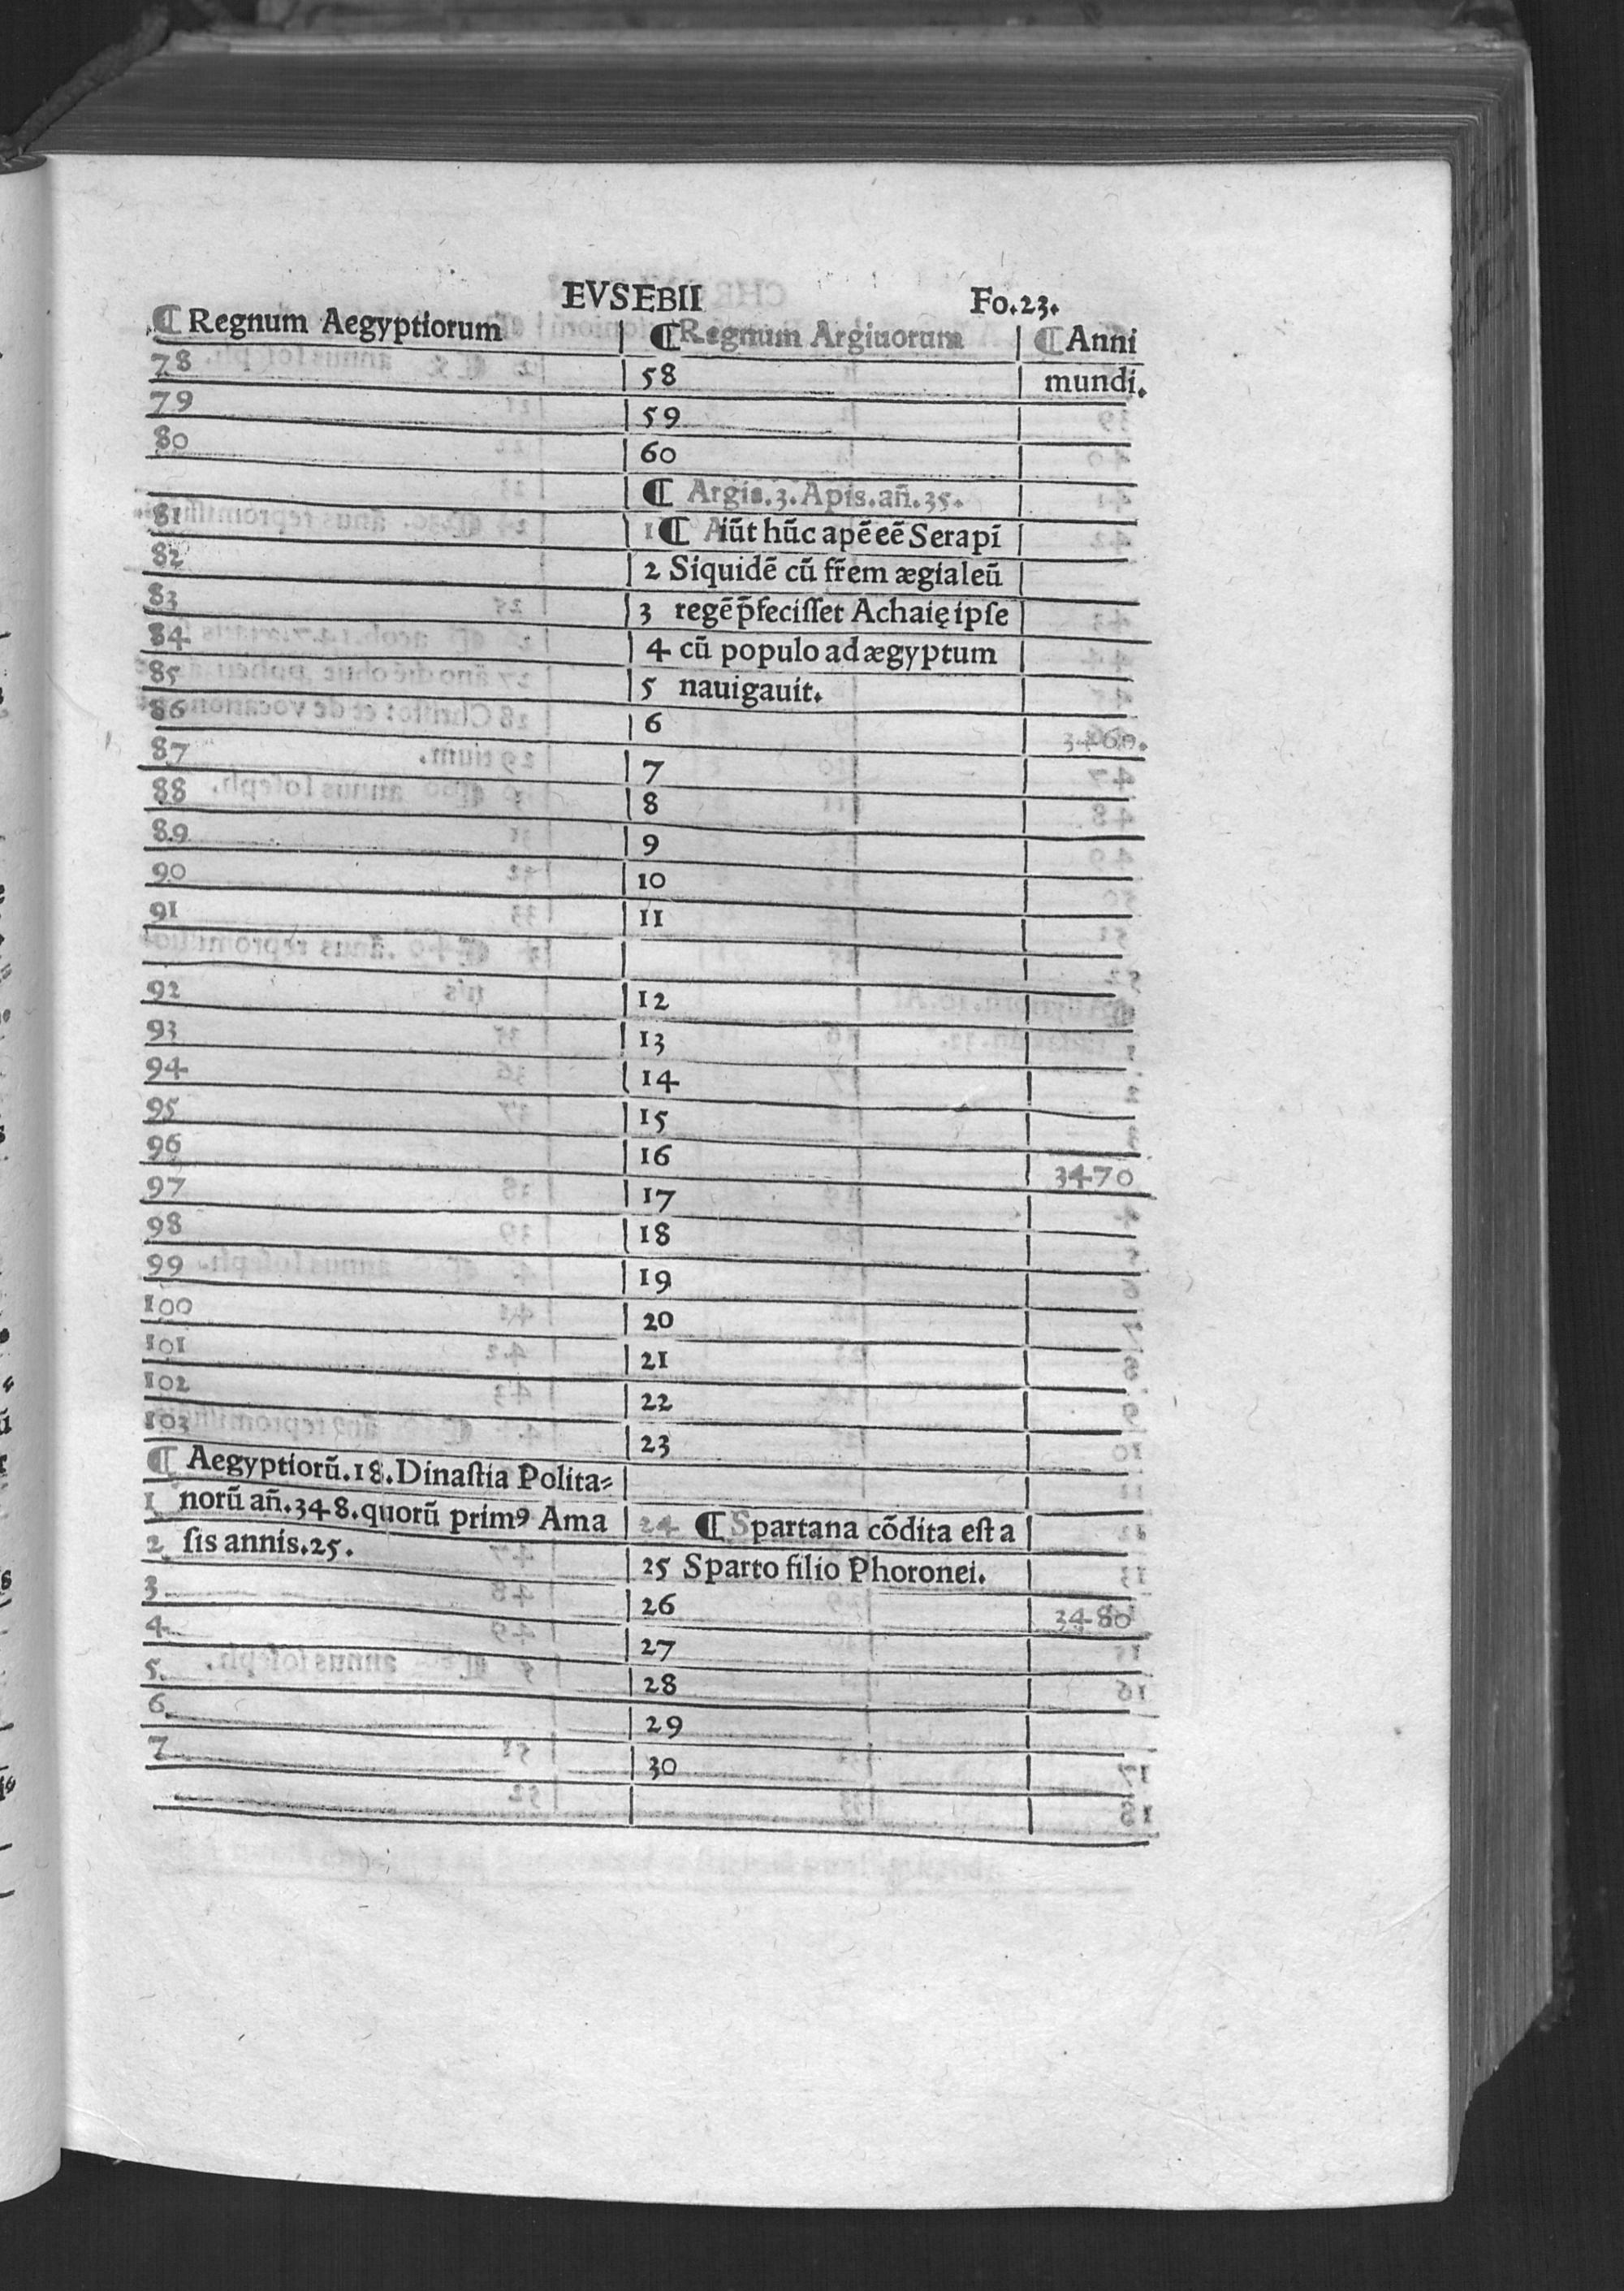 EVSEBII Fo.23.
¶ Regnum Aegyptiorum ¶ Regnum Argiuorum ¶ Anni
78 58 mundi.
79 59
80 60
¶ Argis.3.Apis.añ.35.
81 1 ¶ Aiũt hũc apẽ eẽ Serapĩ
82 2 Siquidẽ cũ fr̃em ægialeũ
83 3 regẽ p̃feciſſet Achaię ipſe
84 4 cũ populo ad ægyptum
85 5 nauigauit.
86 6 3460.
87 7
88 8
89 9
90 10
91 11
92 12
93 13
94 14
95 15
96 16 3470
97 17
98 18
99 19
100 20
101 21
102 22
103 23
¶ Aegyptiorũ.18.Dinaſtia Polita=
1 norũ añ.348.quorũ primꝰ Ama 24 ¶ Spartana cõdita eſt a
2 ſis annis.25. 25 Sparto filio Phoronei.
3 26 3480
4 27
5. 28
6 29
7 30